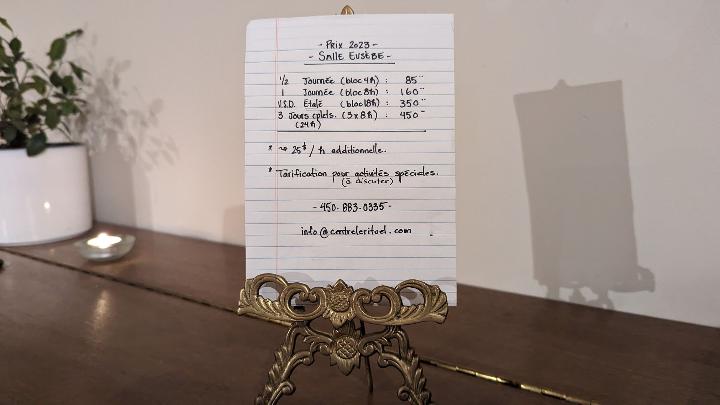 - Prix 2023 -
- Salle Eusèbe -
1/2 Journée (bloc 4h) : 85--
1 Journée (bloc 8h) : 160--
V.S.D. Étalé (bloc 18h) : 350--
3 Jours cplets. (3x8h) : 450--
(24h)
* ~> 25$/h additionnelle.
* Tarification pour activités spéciales.
(à discuter)
- 450-883-0335 -
info@centrelerituel.com